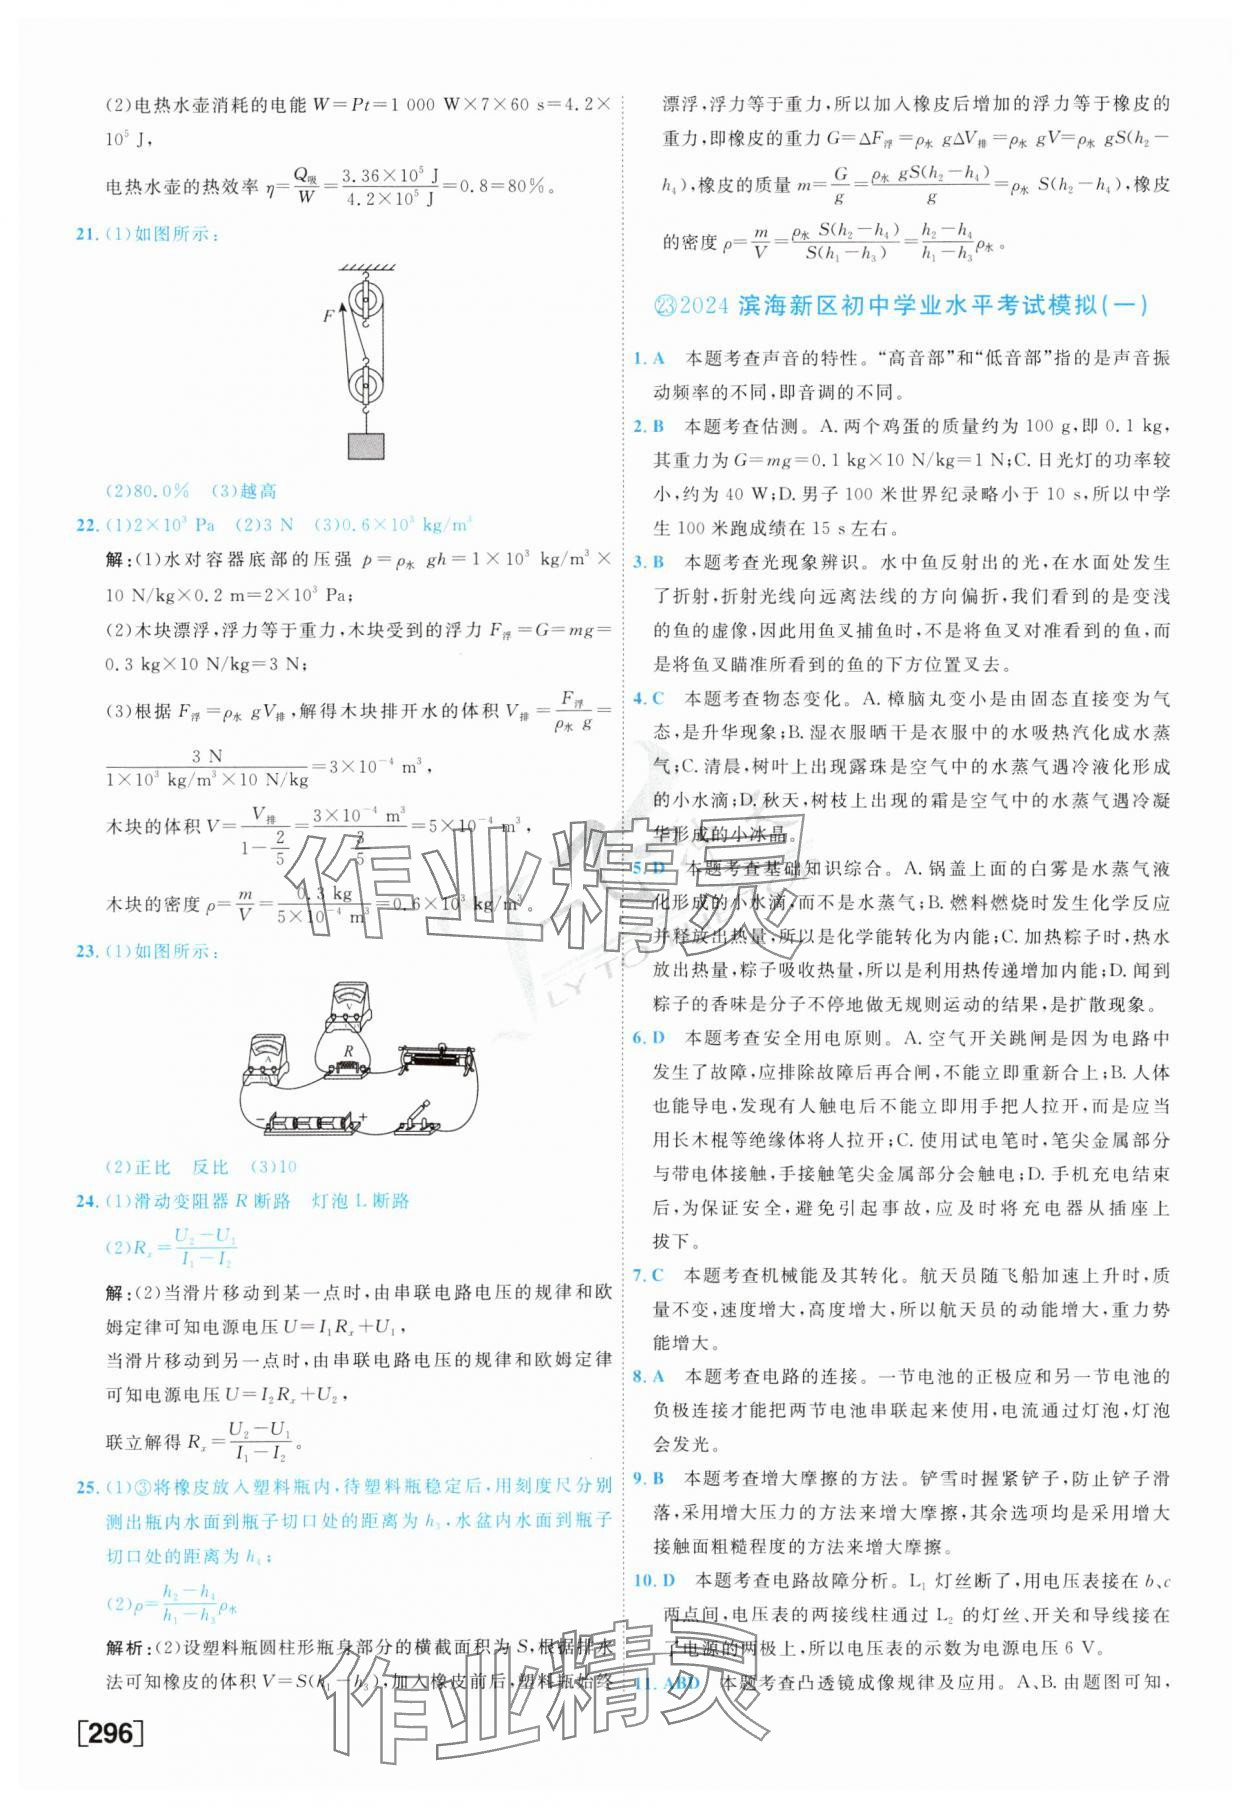 (2)电热水壶消耗的电能 W=Pt=1 000 W×7×60 s=4.2×
10⁵ J，
电热水壶的热效率 η=Q吸/W=3.36×10⁵ J/4.2×10⁵ J=0.8=80%。
21. (1)如图所示：
F
(2)80.0% (3)越高
22. (1)2×10³ Pa (2)3 N (3)0.6×10³ kg/m³
解：(1)水对容器底部的压强 p=ρ水 gh=1×10³ kg/m³×
10 N/kg×0.2 m=2×10³ Pa；
(2)木块漂浮，浮力等于重力，木块受到的浮力 F浮=G=mg=
0.3 kg×10 N/kg=3 N；
(3)根据 F浮=ρ水 gV排，解得木块排开水的体积 V排=F浮/ρ水 g=
3 N/1×10³ kg/m³×10 N/kg=3×10⁻⁴ m³，
木块的体积 V=V排/(1-2/5)=3×10⁻⁴ m³/(3/5)=5×10⁻⁴ m³，
木块的密度 ρ=m/V=0.3 kg/5×10⁻⁴ m³=0.6×10³ kg/m³。
23. (1)如图所示：
V
A
R
− +
(2)正比 反比 (3)10
24. (1)滑动变阻器 R 断路 灯泡 L 断路
(2)Rₓ=(U₂-U₁)/(I₁-I₂)
解：(2)当滑片移动到某一点时，由串联电路电压的规律和欧
姆定律可知电源电压 U=I₁Rₓ+U₁，
当滑片移动到另一点时，由串联电路电压的规律和欧姆定律
可知电源电压 U=I₂Rₓ+U₂，
联立解得 Rₓ=(U₂-U₁)/(I₁-I₂)。
25. (1)③将橡皮放入塑料瓶内，待塑料瓶稳定后，用刻度尺分别
测出瓶内水面到瓶子切口处的距离为 h₃，水盆内水面到瓶子
切口处的距离为 h₄；
(2)ρ=(h₂-h₄)/(h₁-h₃)ρ水
解析：(2)设塑料瓶圆柱形瓶身部分的横截面积为 S，根据排水
法可知橡皮的体积 V=S(h₁-h₃)，加入橡皮前后，塑料瓶始终
[296]
漂浮，浮力等于重力，所以加入橡皮后增加的浮力等于橡皮的
重力，即橡皮的重力 G=ΔF浮=ρ水 gΔV排=ρ水 gV=ρ水 gS(h₂-
h₄)，橡皮的质量 m=G/g=ρ水 gS(h₂-h₄)/g=ρ水 S(h₂-h₄)，橡皮
的密度 ρ=m/V=ρ水 S(h₂-h₄)/S(h₁-h₃)=(h₂-h₄)/(h₁-h₃)ρ水。
㉓2024 滨海新区初中学业水平考试模拟(一)
1. A 本题考查声音的特性。“高音部”和“低音部”指的是声音振
动频率的不同，即音调的不同。
2. B 本题考查估测。A. 两个鸡蛋的质量约为 100 g，即 0.1 kg，
其重力为 G=mg=0.1 kg×10 N/kg=1 N；C. 日光灯的功率较
小，约为 40 W；D. 男子 100 米世界纪录略小于 10 s，所以中学
生 100 米跑成绩在 15 s 左右。
3. B 本题考查光现象辨识。水中鱼反射出的光，在水面处发生
了折射，折射光线向远离法线的方向偏折，我们看到的是变浅
的鱼的虚像，因此用鱼叉捕鱼时，不是将鱼叉对准看到的鱼，而
是将鱼叉瞄准所看到的鱼的下方位置叉去。
4. C 本题考查物态变化。A. 樟脑丸变小是由固态直接变为气
态，是升华现象；B. 湿衣服晒干是衣服中的水吸热汽化成水蒸
气；C. 清晨，树叶上出现露珠是空气中的水蒸气遇冷液化形成
的小水滴；D. 秋天，树枝上出现的霜是空气中的水蒸气遇冷凝
华形成的小冰晶。
5. D 本题考查基础知识综合。A. 锅盖上面的白雾是水蒸气液
化形成的小水滴，而不是水蒸气；B. 燃料燃烧时发生化学反应
并释放出热量，所以是化学能转化为内能；C. 加热粽子时，热水
放出热量，粽子吸收热量，所以是利用热传递增加内能；D. 闻到
粽子的香味是分子不停地做无规则运动的结果，是扩散现象。
6. D 本题考查安全用电原则。A. 空气开关跳闸是因为电路中
发生了故障，应排除故障后再合闸，不能立即重新合上；B. 人体
也能导电，发现有人触电后不能立即用手把人拉开，而是应当
用长木棍等绝缘体将人拉开；C. 使用试电笔时，笔尖金属部分
与带电体接触，手接触笔尖金属部分会触电；D. 手机充电结束
后，为安全起见，避免引起事故，应及时将充电器从插座上
拔下。
7. C 本题考查机械能及其转化。航天员随飞船加速上升时，质
量不变，速度增大，高度增大，所以航天员的动能增大，重力势
能增大。
8. A 本题考查电路的连接。一节电池的正极应和另一节电池的
负极连接才能把两节电池串联起来使用，电流通过灯泡，灯泡
会发光。
9. B 本题考查增大摩擦的方法。铲雪时握紧铲子，防止铲子滑
落，采用增大压力的方法来增大摩擦，其余选项均是采用增大
接触面粗糙程度的方法来增大摩擦。
10. D 本题考查电路故障分析。L₁ 灯丝断了，用电压表接在 b、c
两点间，电压表的两接线柱通过 L₂ 的灯丝、开关和导线接在
了电源的两极上，所以电压表的示数为电源电压 6 V。
11. ABD 本题考查凸透镜成像规律及应用。A、B. 由题图可知，
作业精灵
作业精灵